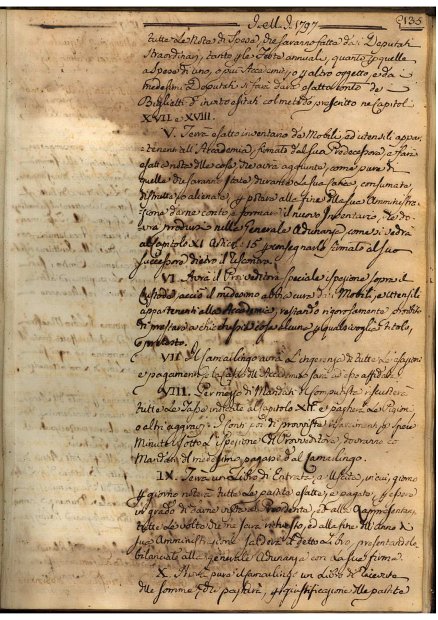 J. M. J. 1797 135
tutte le Note di Spese, che saranno fatte da i Deputati
straordinari, tanto p le Feste annuali, quanto p quelle
a spese di uno, o più Accademici p altro oggetto, e da
medesimi Deputati si farà dare esatto conto de
Biglietti d'invito esitati col metodo prescritto ne Capitoli
XVII e XVIII.
V. Terrà esatto inventario de Mobili, ed utensili appar
tenenti all'Accademia, firmato dal suo Predecessore, e farà
esatte note delle cose, che avrà aggiunte, come pure di
quelle che saranno state durante la sua carica, consumate,
distrutte, o alienate, p potere alla fine della sua Amministra
zione darne conto, e formare il nuovo Inventario, che do
vrà prodursi nella Generale Adunanza, come si vedrà
al Capitolo XI Artic. 15 p consegnarlo firmato al suo
successore dietro il riscontro.
VI. Avrà il Provveditore speciale ispezione sopra il
Custode, acciò il medesimo abbia cura de i Mobili, e utensili
appartenenti alla Accademia, restando rigorosamente proibito
di prestare a chi che sia cosa alcuna p qualsivoglia titolo,
o pretesto.
VII. Il Camarlingo avrà l'ingerenza di tutte le esazioni
e pagamenti, e la Cassa dell'Accademia sarà ad esso affidata.
VIII. Per mezzo di Mandati di Computista riscuoterà
tutte le Tasse indicate al Capitolo XII. e pagherà le Pigioni
o altri aggravi. I conti poi di provviste, risarcimenti, o spese
Minute sotto l'Ispezione del Provveditore dovranno con
Mandato del medesimo, pagarsi dal Camarlingo.
IX. Terrà un Libro di Entrata, e Uscita, in cui, giorno
p giorno noterà tutte le partite esatte, e pagate, p essere
in grado di darne nota al Presidente, ed alla Rappresentanza
tutte le volte che ne sarà richiesto, ed alla fine dell'Anno di
sua Amministrazione salderà il detto Libro, presentandolo
bilanciato alla generale Adunanza con la sua firma.
X. Avrà pure il Camarlingo un Libro di Ricevute
delle somme, che pagherà, p giustificazione delle partite